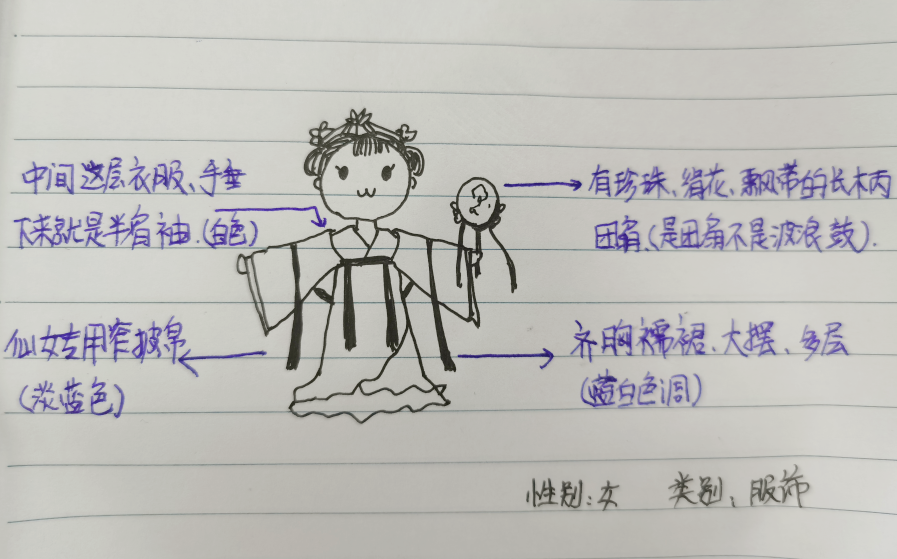 中间这层衣服、手垂
下来就是半肩袖.(白色)
有珍珠、绢花、飘带的长柄
团扇.(是团扇不是波浪鼓).
仙女专用窄披帛
(淡蓝色)
齐胸襦裙、大摆、多层
(蓝白色调)
性别:女 类别、服饰